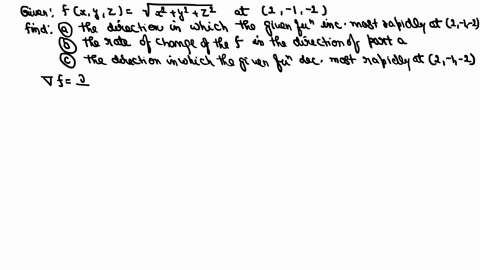 Given: f(x,y,z) = √x²+y²+z² at (2,-1,-2)
find: ⓐ the direction in which the given fuⁿ inc. most rapidly at (2,-1,-2)
ⓑ the rate of change of the f in the direction of part a
ⓒ the direction in which the given fuⁿ dec. most rapidly at (2,-1,-2)
∇f = ∂